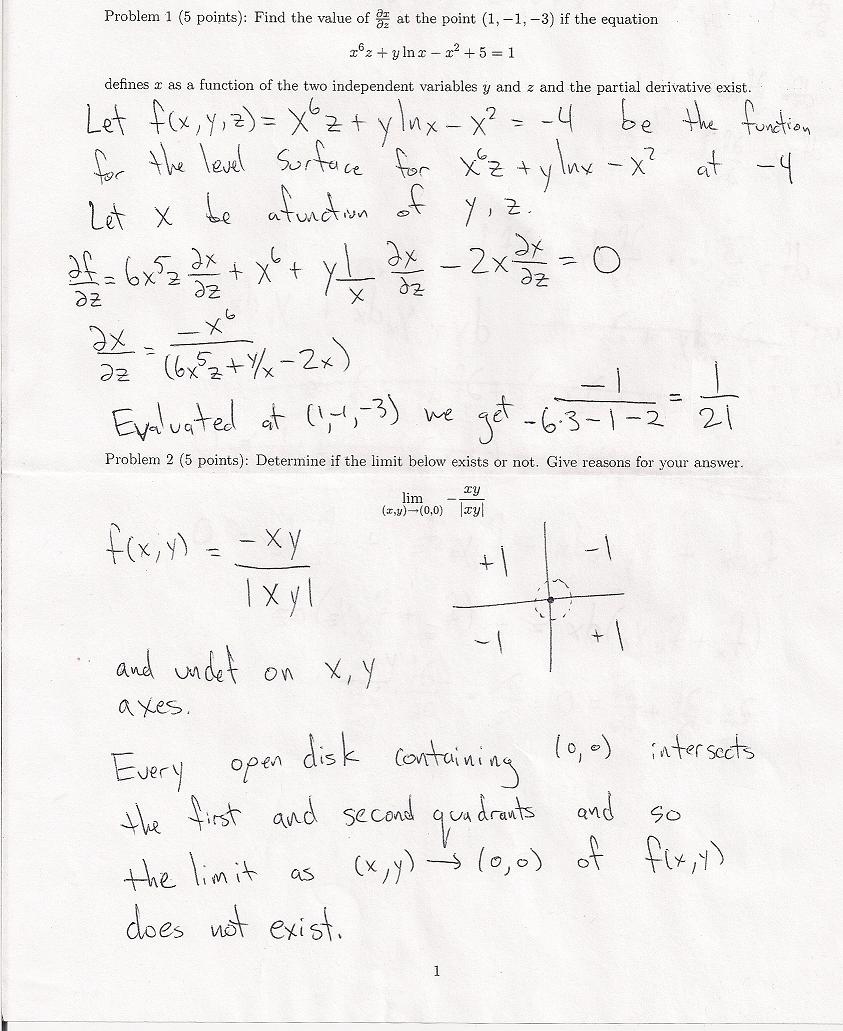 Problem 1 (5 points): Find the value of ∂x/∂z at the point (1, −1, −3) if the equation
x⁶z + y ln x − x² + 5 = 1
defines x as a function of the two independent variables y and z and the partial derivative exist.
Let f(x,y,z) = x⁶z + y ln x − x² = −4 be the function
for the level surface for x⁶z + y ln x − x² at −4
Let x be a function of y, z.
∂f/∂z = 6x⁵z ∂x/∂z + x⁶ + y 1/x ∂x/∂z − 2x ∂x/∂z = 0
∂x/∂z = −x⁶/(6x⁵z + y/x − 2x)
Evaluated at (1,−1,−3) we get −1/(−6·3−1−2) = 1/21
Problem 2 (5 points): Determine if the limit below exists or not. Give reasons for your answer.
lim (x,y)→(0,0) − xy/|xy|
f(x,y) = −xy/|xy|
+1 −1
−1 +1
and undef on x, y
axes.
Every open disk containing (0,0) intersects
the first and second quadrants and so
the limit as (x,y) → (0,0) of f(x,y)
does not exist.
1